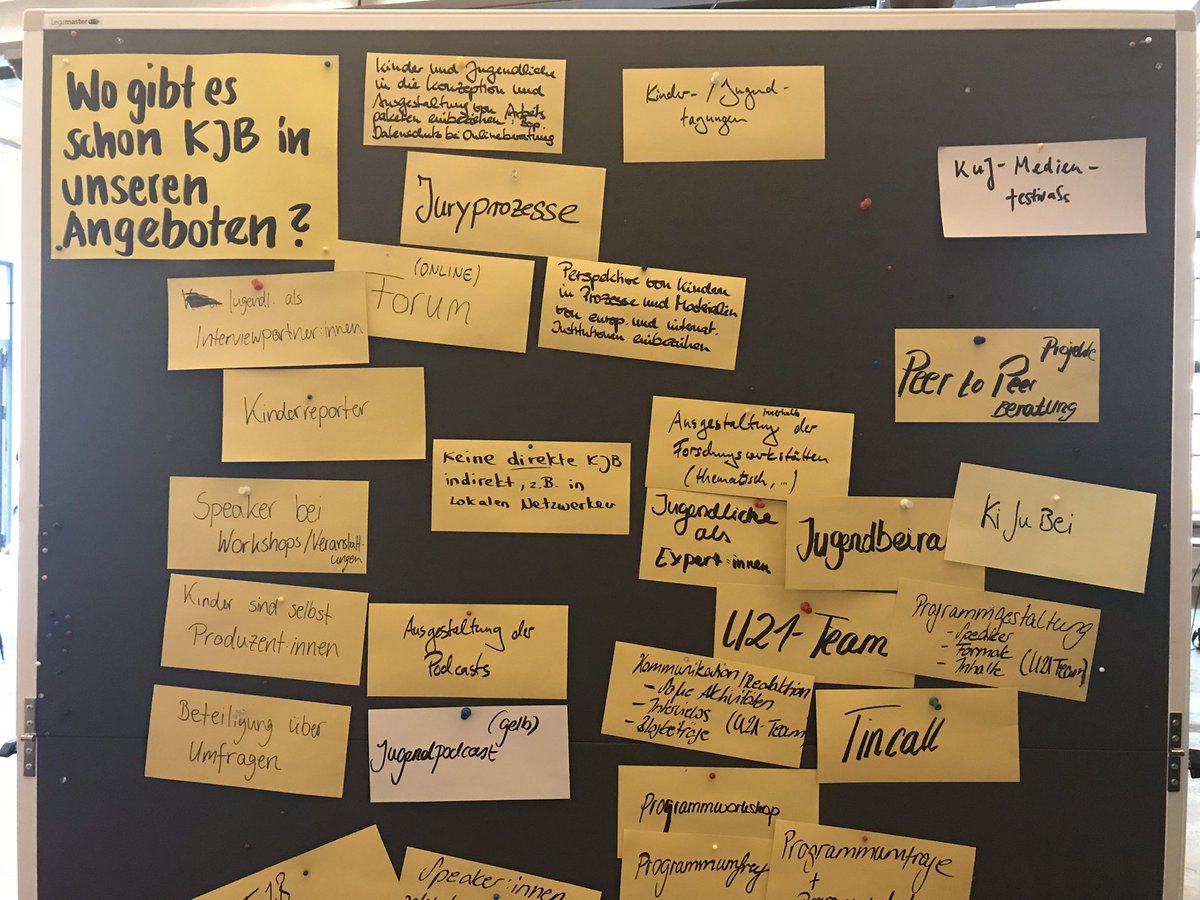 Legamaster
Wo gibt es
schon KJB in
unseren
Angeboten?
Kinder und Jugendliche
in die Konzeption und
Ausgestaltung von Arbeits
paketen einbeziehen: zsp.
Datenschutz bei Onlineberatung
Kinder-/Jugend-
tagungen
KuJ-Medien-
festivals
Juryprozesse
(ONLINE)
Forum
Jugendl. als
Interviewpartner:innen
Perspektive von Kindern
in Prozesse und Materialien
von europ. und internat.
Institutionen einbeziehen
Projekte
Peer to Peer
Beratung
Kinderreporter
Keine direkte KJB
indirekt, z.B. in
Lokalen Netzwerken
innerhalb
Ausgestaltung der
Forschungswerkstätten
(thematisch, ...)
Speaker bei
Workshops/Veranstalt-
ungen
Jugendliche
als
Expert:innen
Jugendbeira
Ki Ju Bei
Kinder sind selbst
Produzent:innen
Ausgestaltung der
Podcasts
U21-Team
Programmgestaltung
- Speaker
- Formate
- Inhalte (U21Team)
Kommunikation/Redaktion
- Aktivitäten
- Interviews
- Blogbeträge (U21-Team)
Beteiligung über
Umfragen
(gelb)
Jugendpodcast
Tincall
Programmworkshop
Programmumfrag
Programmumfrage
+
Speaker:innen